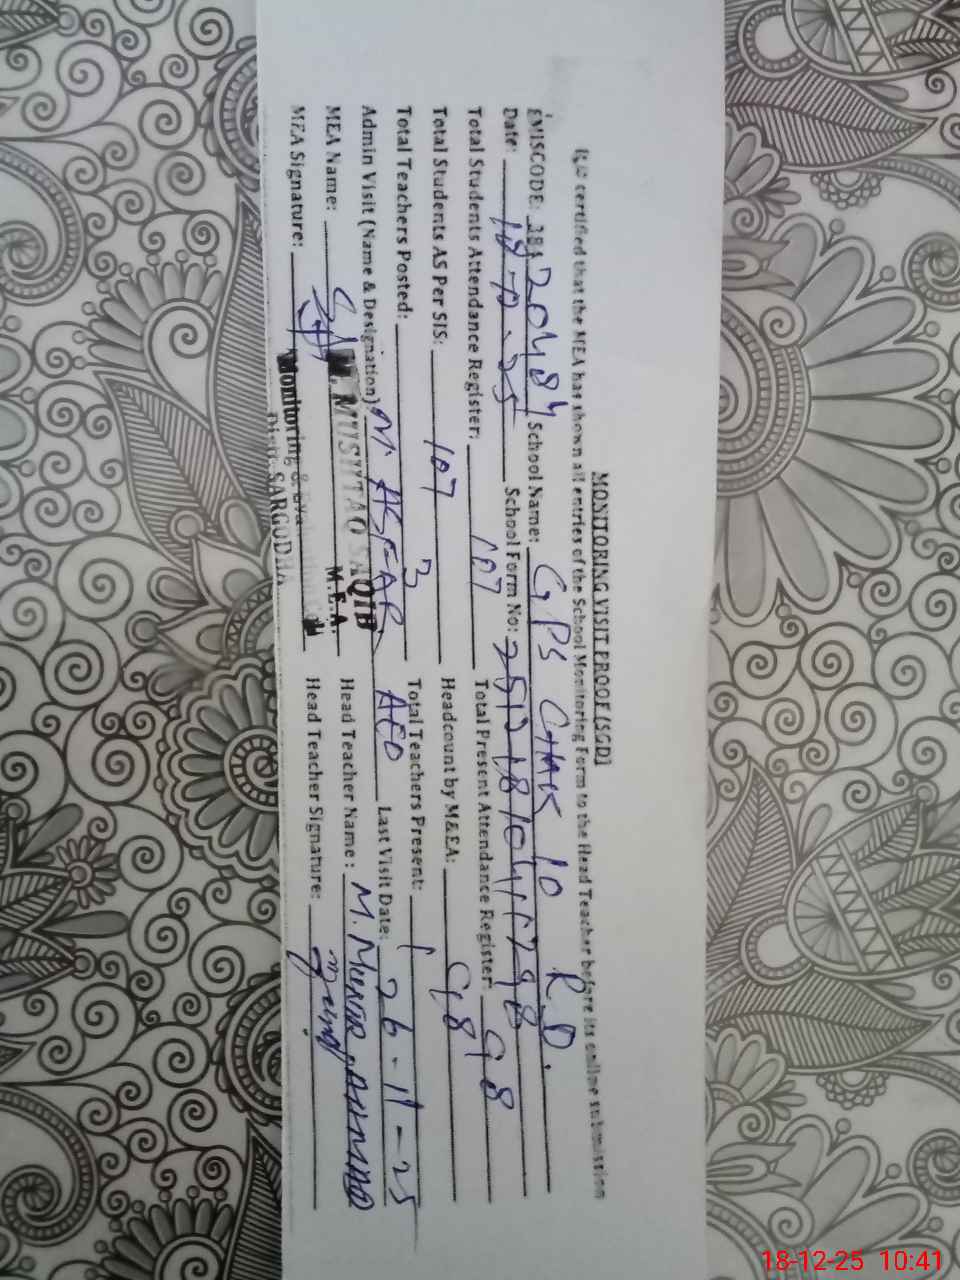 MONITORING VISIT PROOF [SGD]
certified that the MEA has shown all entries of the School Monitoring Form to the Head Teacher before its online submission
EMISCODE: 38420484 School Name: GPS CHAK 10 R.D.
Date: 18-12-25 School Form No:
Total Students Attendance Register: 107 Total Present Attendance Register: 98
Total Students AS Per SIS: 107 Headcount by M&EA: 98
Total Teachers Posted: 3 Total Teachers Present: 1
Admin Visit (Name & Designation) M. ASFAR AEO Last Visit Date: 26-11-25
MEA Name: MUSHTAQ SAQIB M.E.A. Head Teacher Name: M. MUNIR AHMAD
MEA Signature: Monitoring & Head Teacher Signature:
Distt. SARGODHA
18-12-25 10:41